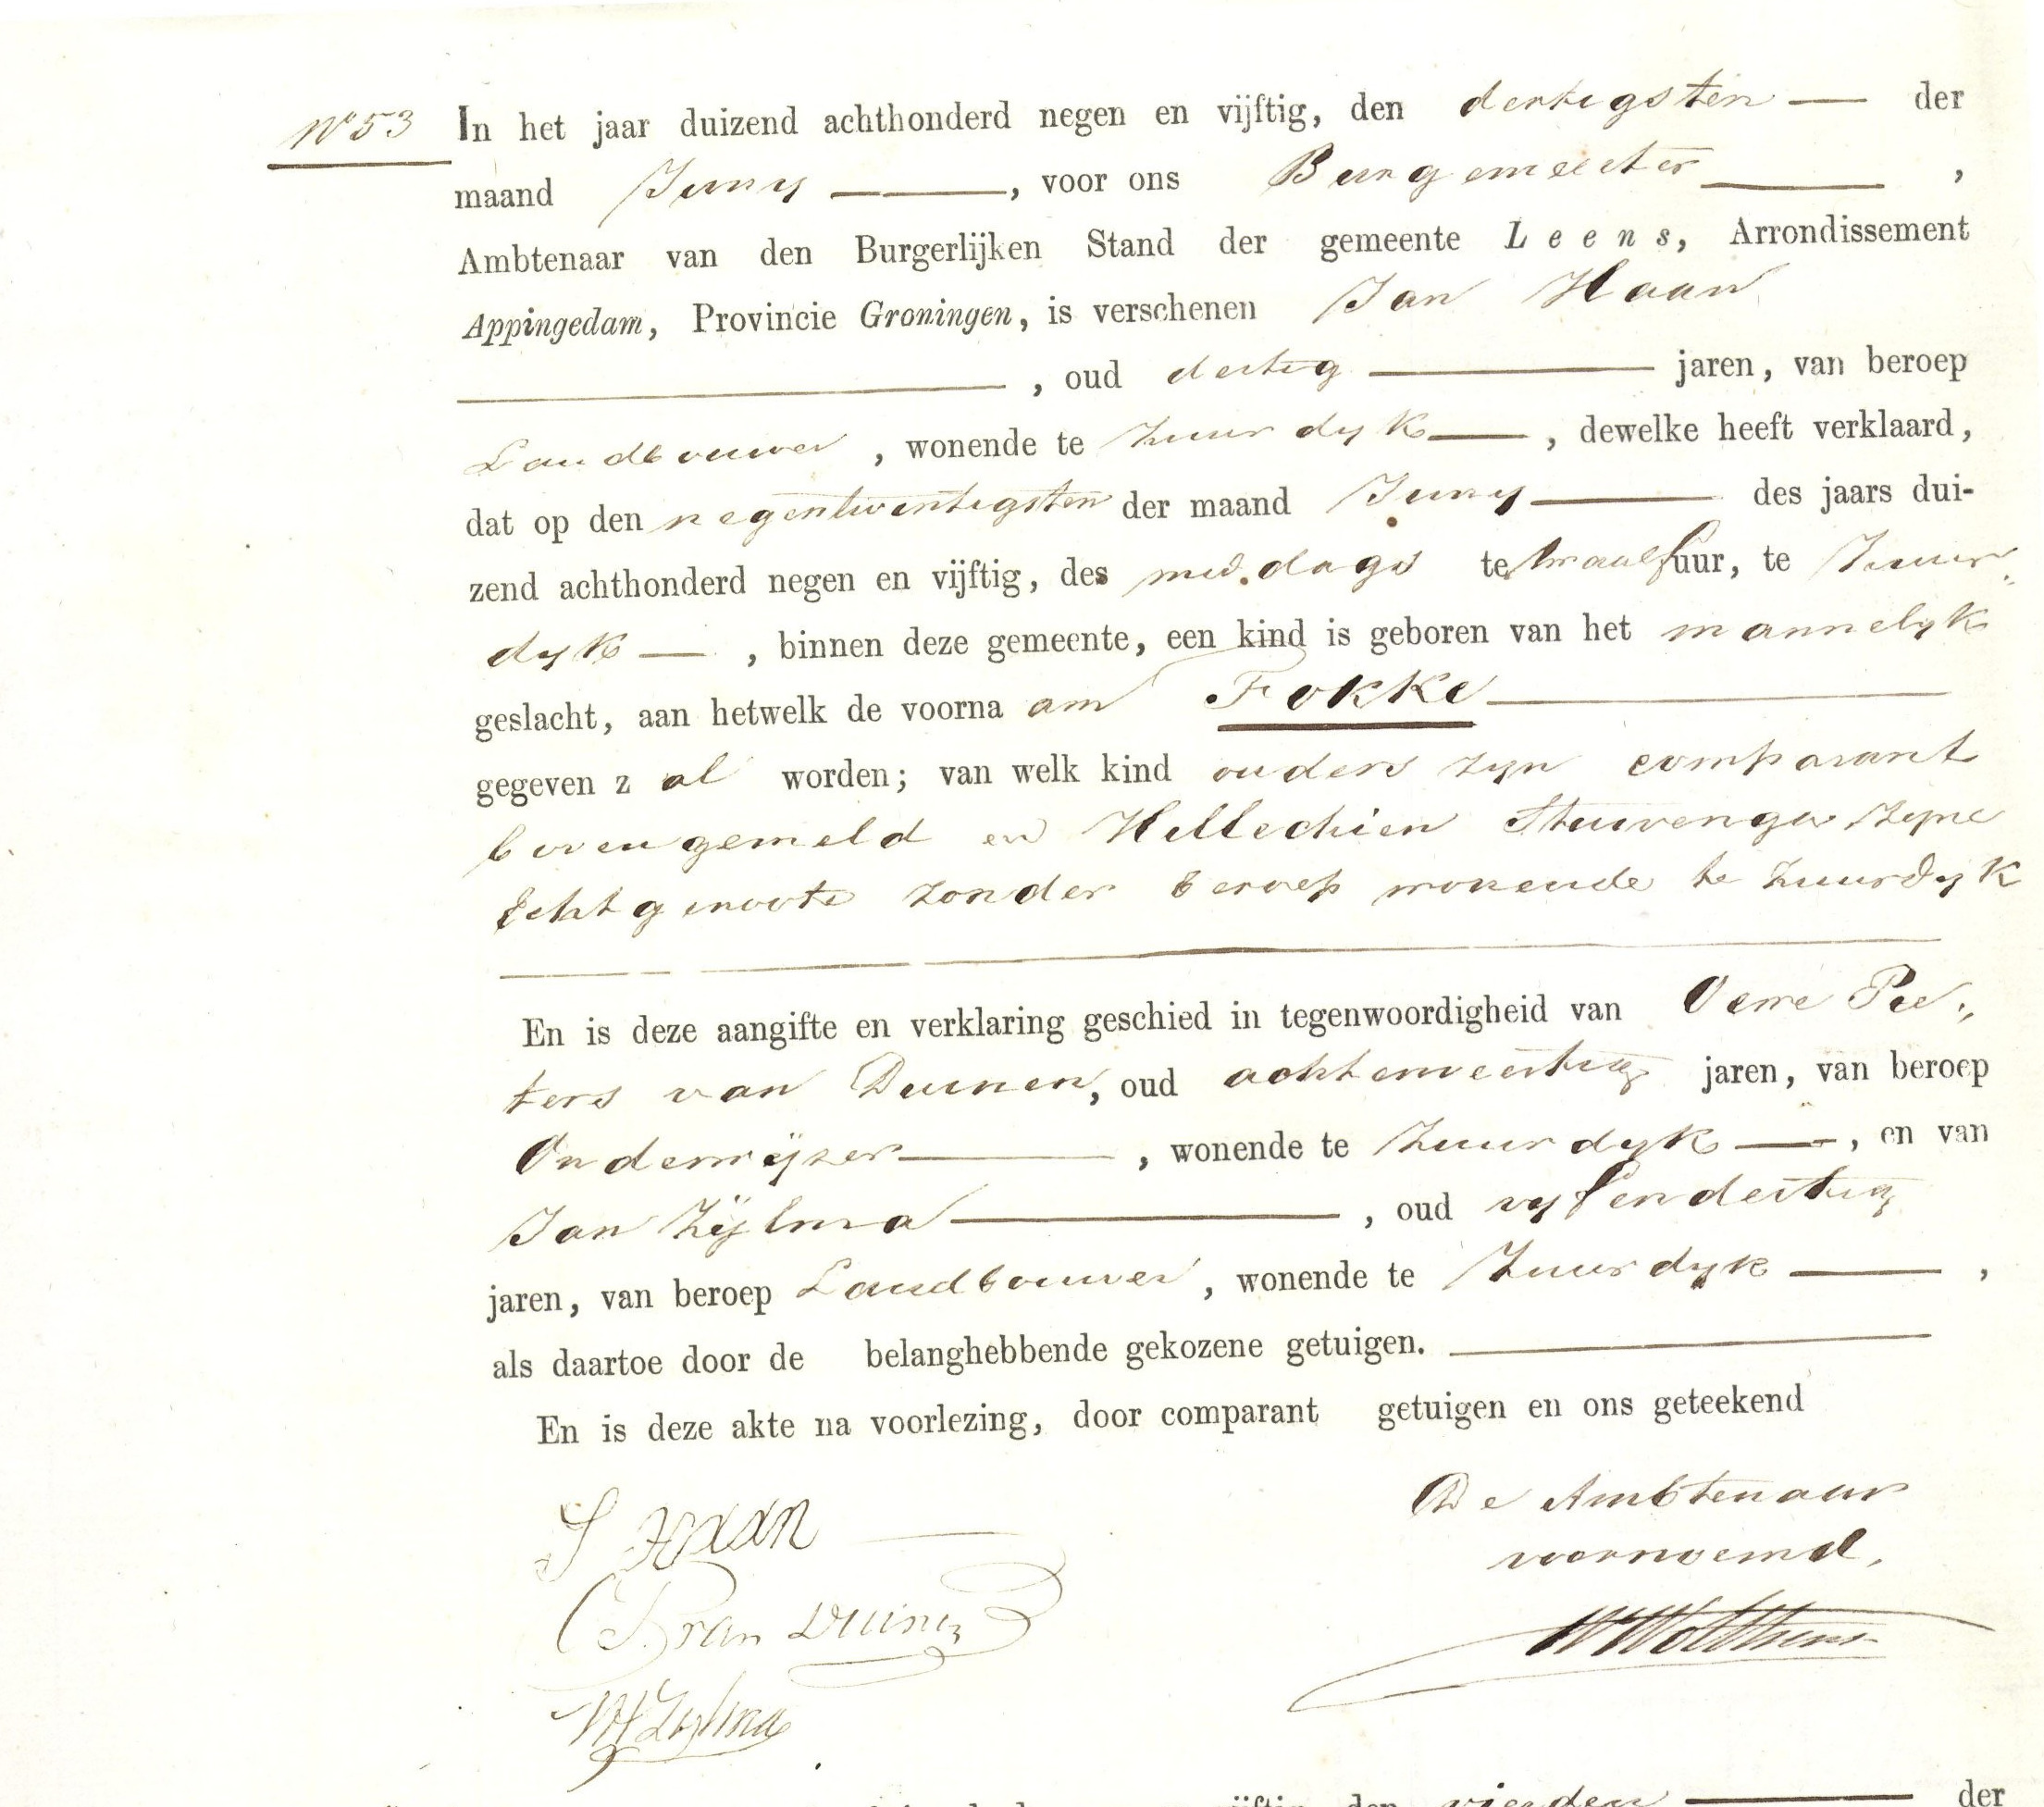 N° 53 In het jaar duizend achthonderd negen en vijftig, den dertigsten — der
maand Juny ——, voor ons Burgemeester ——,
Ambtenaar van den Burgerlijken Stand der gemeente Leens, Arrondissement
Appingedam, Provincie Groningen, is verschenen Jan Haan
——, oud dertig —— jaren, van beroep
Landbouwer, wonende te Zuurdyk —, dewelke heeft verklaard,
dat op den negentwintigsten der maand Juny —— des jaars dui-
zend achthonderd negen en vijftig, des middags te twaalf uur, te Zuur„
dyk —, binnen deze gemeente, een kind is geboren van het mannelyk
geslacht, aan hetwelk de voorna am Fokke ——
gegeven z al worden; van welk kind ouders zyn comparant
bovengemeld en Hillechien Stuivenga zyne
Echtgenoote zonder beroep wonende te Zuurdyk
En is deze aangifte en verklaring geschied in tegenwoordigheid van Pee„
ters van Duinen, oud achtenveertig jaren, van beroep
Onderwijzer ——, wonende te Zuurdyk —, en van
Jan Zijlma ——, oud vyfendertig
jaren, van beroep Landbouwer, wonende te Zuurdyk ——,
als daartoe door de belanghebbende gekozene getuigen. ——
En is deze akte na voorlezing, door comparant getuigen en ons geteekend
De Ambtenaar
voornoemd,
J Haan
van Duinen
Zylma
vijftig, den vierden —— der